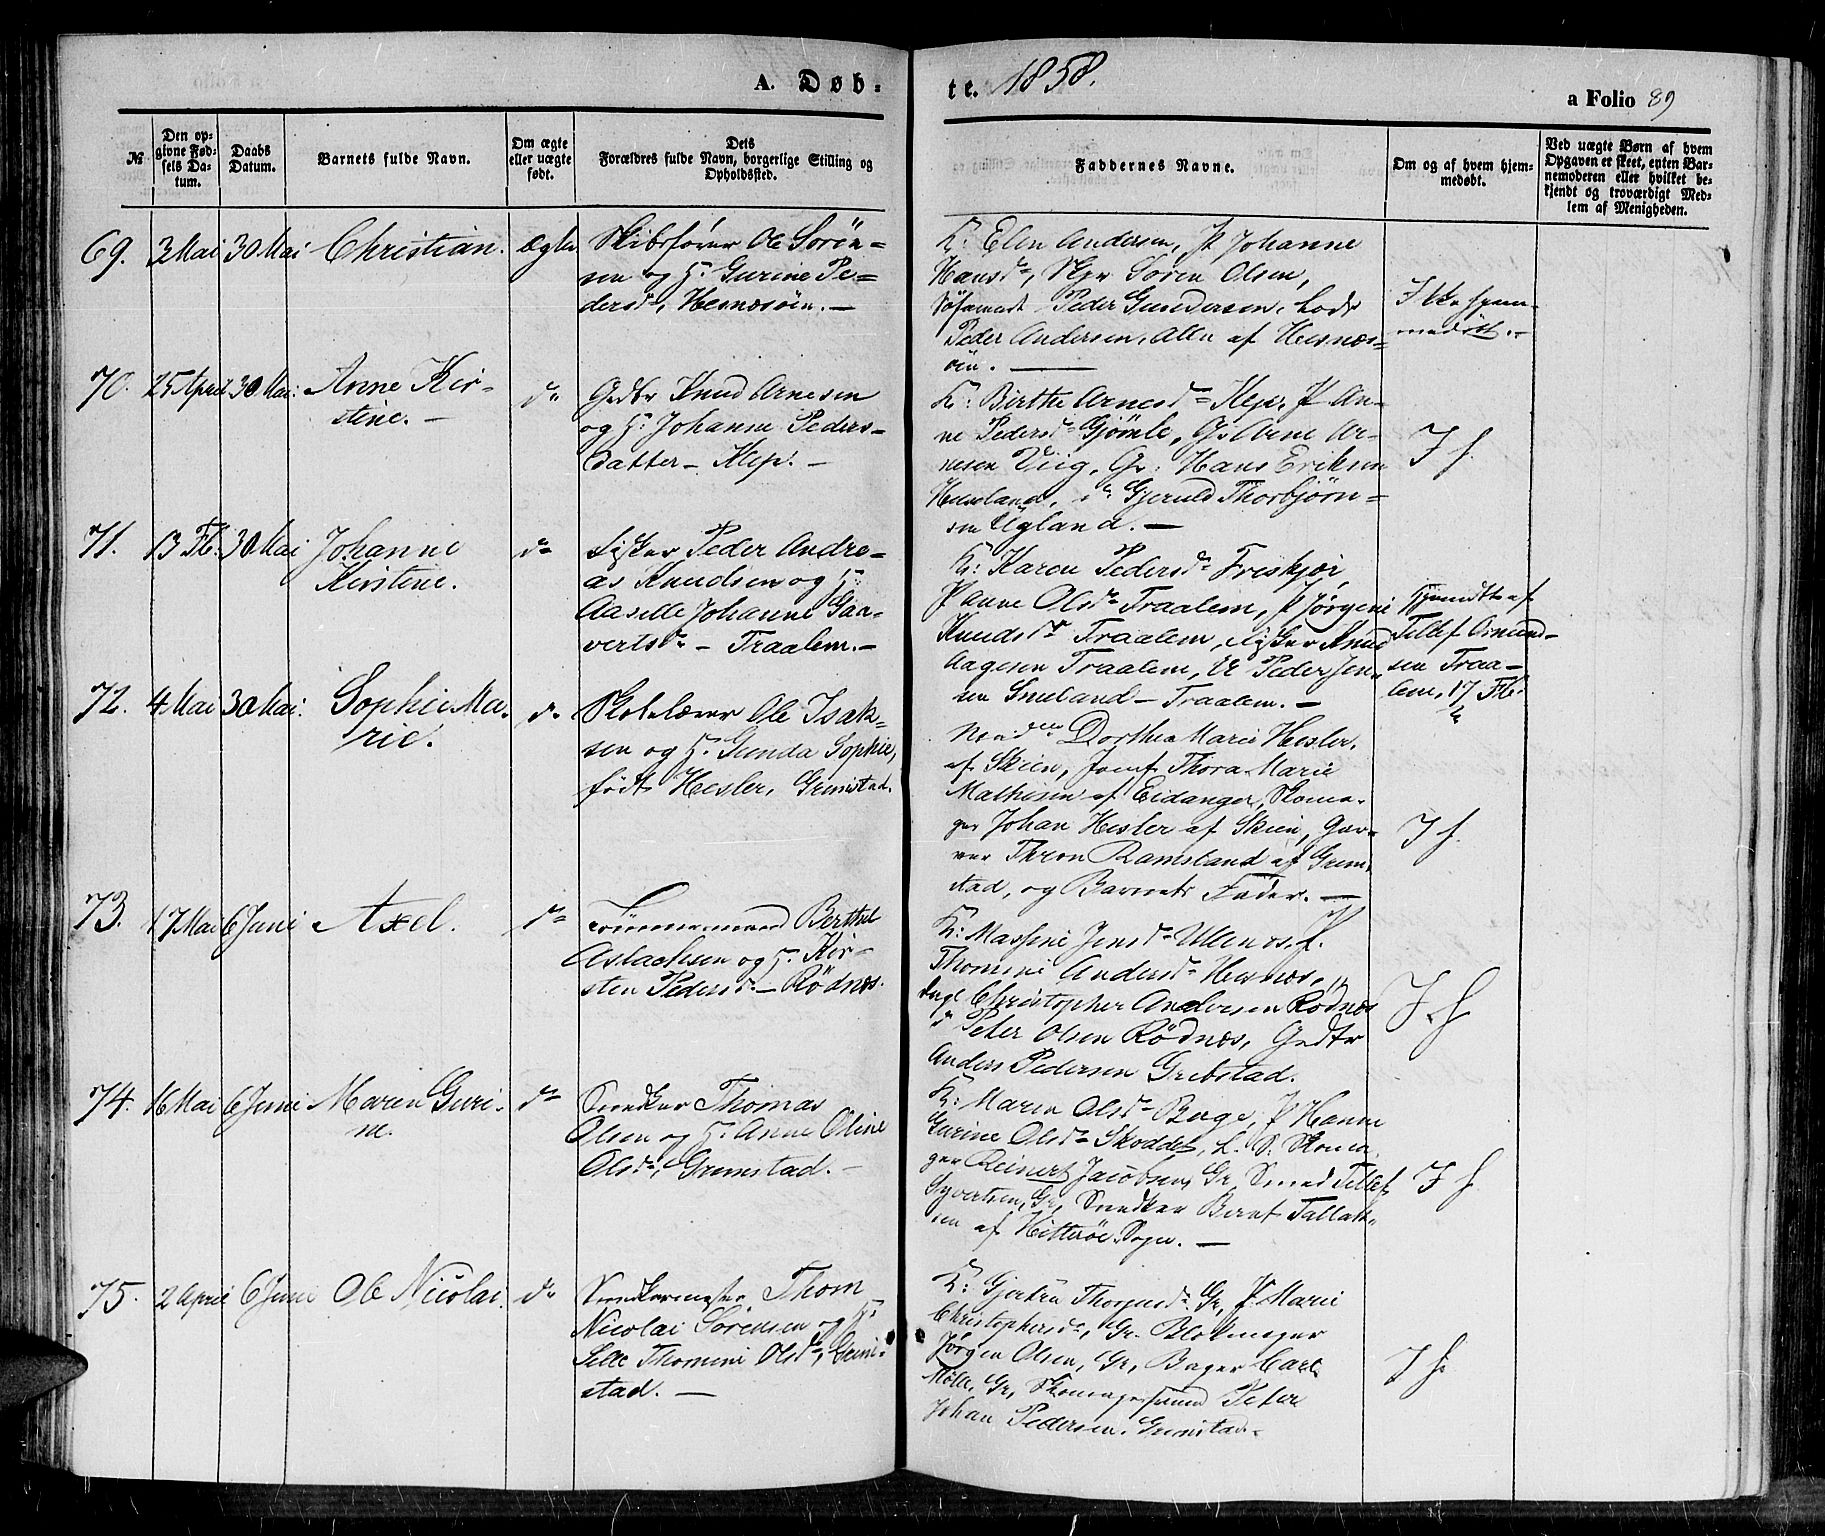 A. Døb-
te. 1858.
a Folio 89
№
Den op-
givne Fød-
sels Da-
tum.
Daabs
Datum.
Barnets fulde Navn.
Om ægte
eller uægte
født.
Dets
Forældres fulde Navn, borgerlige Stilling og
Opholdssted.
Faddernes Navne.
Om og af hvem hjem-
medøbt.
Ved uægte Børn af hvem
Opgaven er skeet, enten Bar-
nemoderen eller hvilket be-
kjendt og troværdigt Med-
lem af Menigheden.
69. 3 Mai 30 Mai Christian. ægte
Skibsfører Ole Sørén-
sen og H. Gurine Pe-
dersdr, Hesnesøen. —
K: Elen Andersen, P Johanne
Hansdr, Skpr Søren Olsen,
Søfarende Peder Gundersen, Lods
Peder Andersen, Alle af Hesnæs-
øen. —
Ikke hjem-
medøbt. -
70. 25 April 30 Mai: Anne Kir-
stine. - do
Gedbr Knud Arnesen
og H: Johanne Peders-
datter - Klep. -
K: Birthe Arnesdr Klep, P An-
ne Pedersdr Gjömle, G: Arne Ar-
nesen Viig, Gr: Hans Eriksen
do Gjeruld Thorbjørn-
sen Ugland. —
I h.
71. 13 Fb. 30 Mai Johanne
Kirstine. do
Lysker Peder Andre-
as Knudsen og H:
Aasille Johanne Gaa-
vertsdr - Traalem. -
K: Karen Pedersdr Freskjær,
P Anne Olsdr Traalem, P Jørgine
Knudsdr Traalem, Lysker Knud
Aagesen Traalem, U Peder Jen-
sen - Traalem. -
Hjemdbt af
Tellef Asmund-
sen Traa-
lem, 17 Fb.
72. 4 Mai 30 Mai. Sophie Ma-
rie. do
Skolelærer Ole Isak-
sen og H. Gunda Sophie,
født Hesler, Grimstad.
Dorthea Marie Hesler,
af Skien, Jomf Thora Marie
Mathisen af Eidanger, Skoma-
ger Johan Hesler af Skien, Gar-
ver Thron Ramsland af Grim-
stad, og Barnets Fader. —
I h.
73. 17 Mai 6 Juni Axel. do
Tømmermand Berthel
Aslachsen og H. Kir-
sten Pedersdr - Rödnes.
K: Massine Jensdr Ullenes, P.
Thomine Andersdr Hesnes,
Ungk Christopher Andersen Rödnes
do Peter Olsen Rødnes, Gedbr
Anders Pedersen Grebstad.
I. h
74. 16 Mai 6 Juni Maren Guri-
ne. do
Snedker Thomas
Olsen og H. Anne Oline
Olsdr, Grimstad. -
K: Maren Olsdr Berge, P Hanne
Gurine Olsdr Skoddet, L. S. Skoma-
ger Reinert Jacobsen, Gr, Smed Tellef
Syvertsen, Gr, Snedker Bernt Tallak-
sen af Hitterøe Sogn. —
I h
75. 2 April 6 Juni Ole Nicolai. do
Snedkermester Thom
Nicolai Sørensen og H.
Sille Thomine Olsdr, Grim-
stad. —
K: Gjertrú Thomesdr Gr, P Marie
Christophersdr, Gr. Blokmager
Jørgen Olsen, Gr, Bager Carl
Møller, Gr, Skomagersvend Peter
Johan Pedersen, Grimstad.
I h.